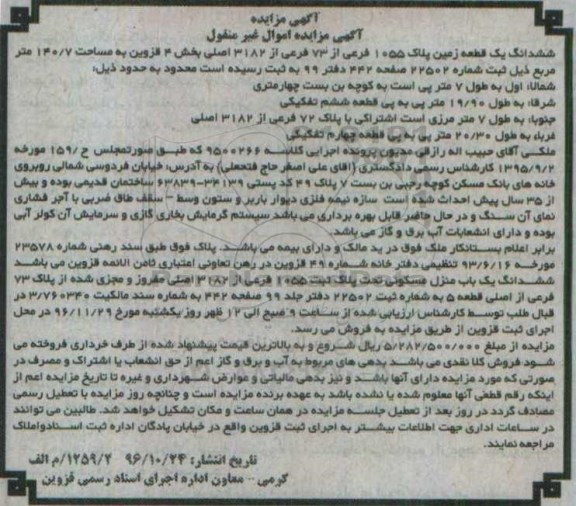 آگهی مزایده
آگهی مزایده اموال غیر منقول
ششدانگ یک قطعه زمین پلاک ۱۰۵۵ فرعی از ۷۳ فرعی از ۳۱۸۲ اصلی بخش ۴ قزوین به مساحت ۱۴۰/۷ متر
مربع ذیل ثبت شماره ۲۲۵۰۲ صفحه ۴۴۲ دفتر ۹۹ به ثبت رسیده است محدود به حدود ذیل:
شمالا: اول به طول ۷ متر پی است به کوچه بن بست چهارمتری
شرقا: به طول ۱۹/۹۰ متر پی به پی قطعه ششم تفکیکی
جنوبا: به طول ۷ متر مرزی است اشتراکی با پلاک ۷۲ فرعی از ۳۱۸۲ اصلی
غربا: به طول ۲۰/۳۰ متر پی به پی قطعه چهارم تفکیکی
ملکی آقای حبیب اله رازقی مدیون پرونده اجرایی کلاسه ۹۵۰۰۲۶۶ که طبق صورتمجلس ح/۱۵۹ مورخه
۱۳۹۵/۹/۲ کارشناس رسمی دادگستری (آقای علی اصغر حاج فتحعلی) به آدرس: خیابان فردوسی شمالی روبروی
خانه های بانک مسکن کوچه رجبی بن بست ۷ پلاک ۴۹ کد پستی ۳۴۱۳۹-۶۳۸۳۹ ساختمان قدیمی بوده و بیش
از ۳۵ سال پیش احداث شده است سازه نیمه فلزی دیوار باربر و ستون وسط - سقف طاق ضربی با آجر فشاری
نمای آن سنگ و در حال حاضر قابل بهره برداری می باشد سیستم گرمایش بخاری گازی و سرمایش آن کولر آبی
بوده و دارای انشعابات آب برق و گاز می باشد.
برابر اعلام بستانکار ملک فوق در ید مالک و دارای بیمه می باشد. پلاک فوق طبق سند رهنی شماره ۲۳۵۷۸
مورخه ۹۳/۶/۱۶ تنظیمی دفتر خانه شماره ۴۹ قزوین در رهن تعاونی اعتباری ثامن الائمه قزوین می باشد
ششدانگ یک باب منزل مسکونی تحت پلاک ۱۰۵۵ فرعی از ۳۱۸۲ اصلی مفروز و مجزی شده از پلاک ۷۳
فرعی از اصلی قطعه ۵ به شماره ثبت ۲۲۵۰۲ دفتر جلد ۹۹ صفحه ۴۴۲ به شماره سند مالکیت ۳/۷۶۰۳۴۰ در
قبال طلب توسط کارشناس ارزیابی شده از ساعت ۹ صبح الی ۱۲ ظهر روز یکشنبه مورخ ۹۶/۱۱/۲۹ در محل
اجرای ثبت قزوین از طریق مزایده به فروش می رسد.
مزایده از مبلغ ۵/۲۸۲/۵۰۰/۰۰۰ ریال شروع و به بالاترین قیمت پیشنهاد شده از طرف خریداری فروخته می
شود فروش کلا نقدی می باشد بدهی های مربوط به آب و برق و گاز اعم از حق انشعاب یا اشتراک و مصرف در
صورتی که مورد مزایده دارای آنها باشد و نیز بدهی مالیاتی و عوارض شهرداری و غیره تا تاریخ مزایده اعم از
اینکه رقم قطعی آنها معلوم شده یا نشده باشد به عهده برنده مزایده است و چنانچه روز مزایده با تعطیل رسمی
مصادف گردد در روز بعد از تعطیل جلسه مزایده در همان ساعت و مکان تشکیل خواهد شد. طالبین می توانند
در ساعات اداری جهت اطلاعات بیشتر به اجرای ثبت قزوین واقع در خیابان پادگان اداره ثبت اسنادواملاک
مراجعه نمایند.
تاریخ انتشار: ۹۶/۱۰/۲۴ ۱۲۵۹/۲/م الف
کرمی - معاون اداره اجرای اسناد رسمی قزوین